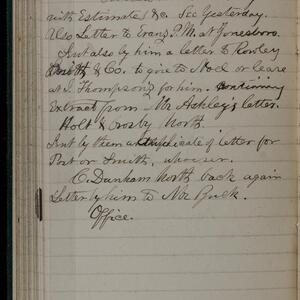 with Estimates &c. See Yesterday.
Also Letter to Evans P.M. at Jonesboro.
Sent also by him a letter to Rowley
& Co. to give to Noel or leave
at S. Thompson's for him.
Extract from Mr Ashley's letter.
Holt & Crosby North.
Sent by them a duplicate of letter for
Post or Smith,
C. Dunham North back again
Letter by him to Mr Buck.
Office.